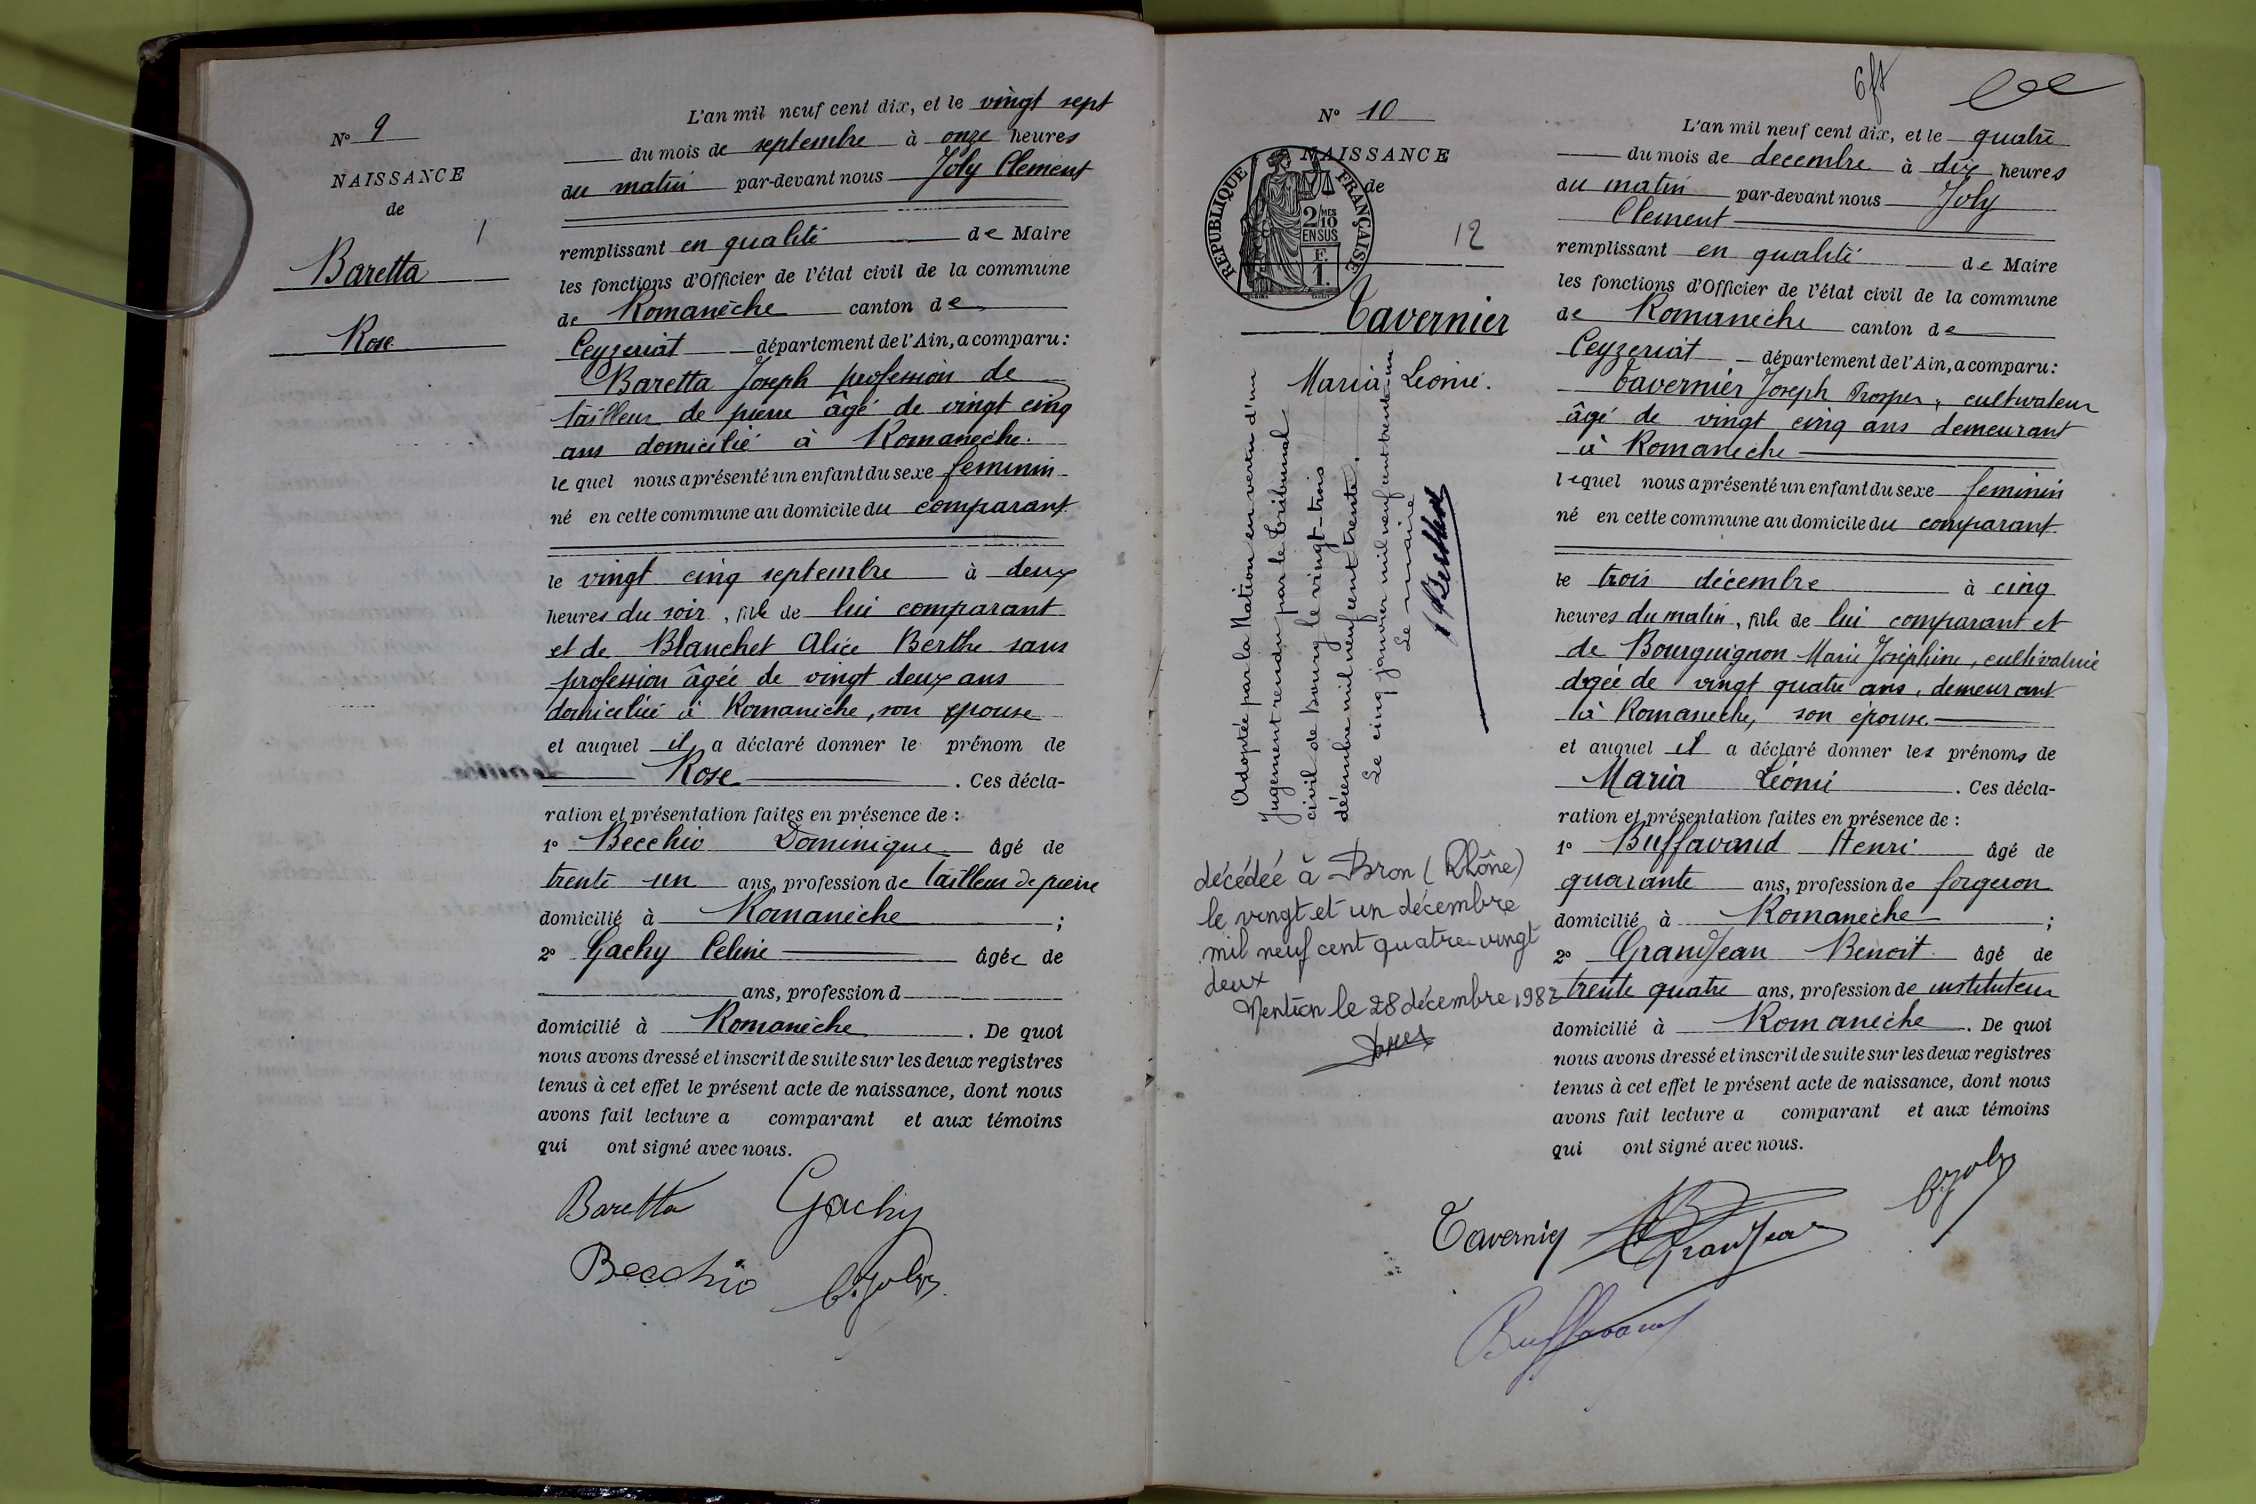 N° 9
NAISSANCE
de
1
Baretta
Rose
L'an mil neuf cent dix, et le vingt sept
du mois de septembre à onze heures
du matin par-devant nous Joly Clement
remplissant en qualité de Maire
les fonctions d'Officier de l'état civil de la commune
de Romanèche canton de
Ceyzeriat département de l'Ain, a comparu:
Baretta Joseph profession de
tailleur de pierre âgé de vingt cinq
ans domicilié à Romanèche.
lequel nous a présenté un enfant du sexe feminin
né en cette commune au domicile du comparant
le vingt cinq septembre à deux
heures du soir, fille de lui comparant
et de Blanchet Alice Berthe sans
profession âgée de vingt deux ans
domiciliée à Romanèche, son épouse
et auquel il a déclaré donner le prénom de
Rose. Ces décla-
ration et présentation faites en présence de :
1° Becchio Dominique âgé de
trente un ans, profession de tailleur de pierre
domicilié à Romanèche ;
2° Gachy Celine âgée de
ans, profession d
domicilié à Romanèche. De quoi
nous avons dressé et inscrit de suite sur les deux registres
tenus à cet effet le présent acte de naissance, dont nous
avons fait lecture a comparant et aux témoins
qui ont signé avec nous.
Baretta Gachy
Becchio C. Joly
6 ft
N° 10
NAISSANCE
de
REPUBLIQUE FRANÇAISE
2/10 MES
EN SUS
F.
1.
12
Tavernier
Maria Léonie.
Adoptée par la Nation en vertu d'un
Jugement rendu par le Tribunal
civil de Bourg le vingt-trois
décembre mil neuf cent trente.
Le cinq janvier mil neuf cent trente un
Le maire
décédée à Bron (Rhône)
le vingt et un décembre
mil neuf cent quatre-vingt
deux
Mention le 28 décembre 1982
L'an mil neuf cent dix, et le quatre
du mois de decembre à dix heures
du matin par-devant nous Joly
Clement
remplissant en qualité de Maire
les fonctions d'Officier de l'état civil de la commune
de Romanèche canton de
Ceyzeriat département de l'Ain, a comparu:
Tavernier Joseph Prosper, cultivateur
âgé de vingt cinq ans demeurant
à Romanèche
lequel nous a présenté un enfant du sexe feminin
né en cette commune au domicile du comparant
le trois décembre à cinq
heures du matin, fille de lui comparant et
de Bourguignon Marie Joséphine, cultivatrice
âgée de vingt quatre ans, demeurant
à Romanèche, son épouse
et auquel il a déclaré donner les prénoms de
Maria Léonie. Ces décla-
ration et présentation faites en présence de :
1° Buffavand Henri âgé de
quarante ans, profession de forgeron
domicilié à Romanèche ;
2° Grandjean Benoit âgé de
trente quatre ans, profession de instituteur
domicilié à Romanèche. De quoi
nous avons dressé et inscrit de suite sur les deux registres
tenus à cet effet le présent acte de naissance, dont nous
avons fait lecture a comparant et aux témoins
qui ont signé avec nous.
Tavernier Grandjean C. Joly
Buffavand